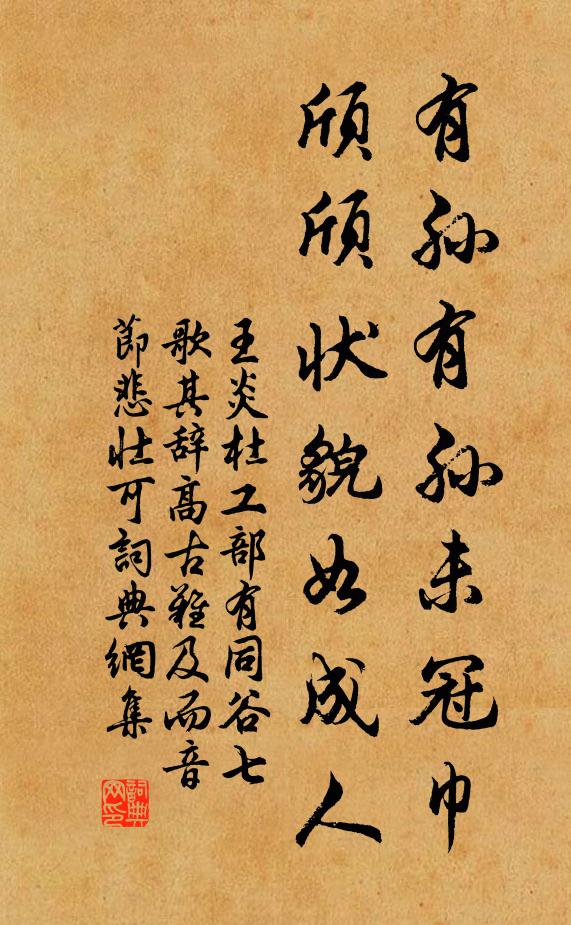 有孙有孙未冠巾
颀颀状貌如成人
王炎杜工部有同谷七
歌其辞高古难及而音
节悲壮可詞典網集
詞典
网印